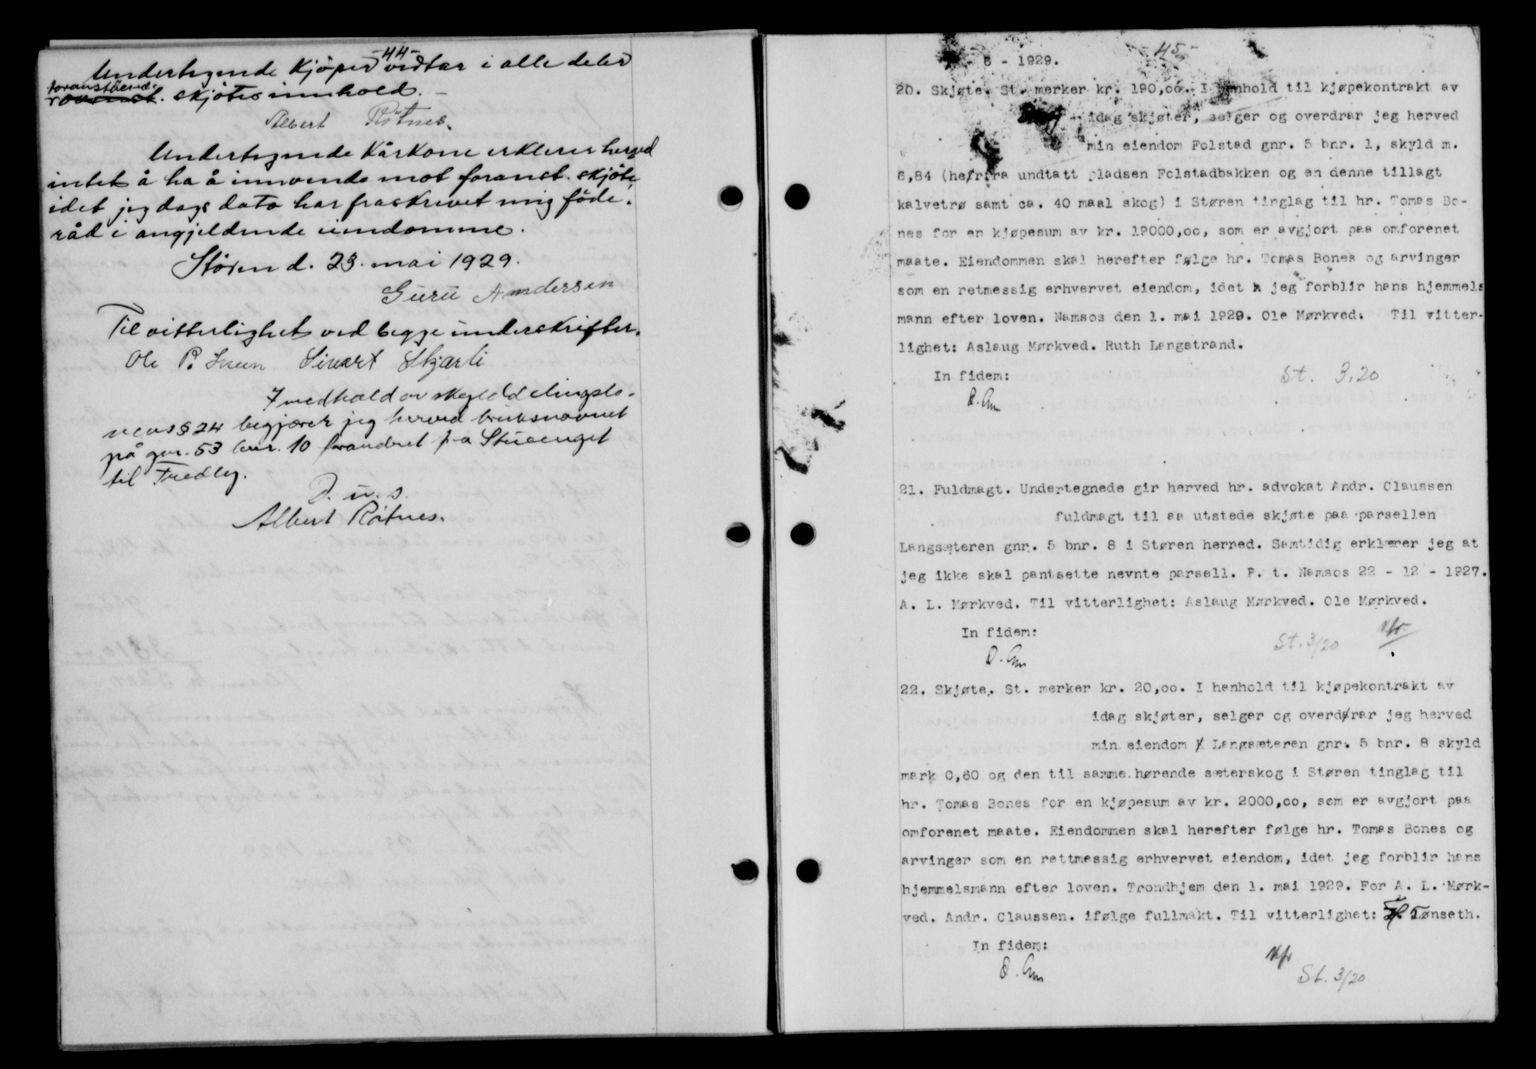 -44-
Undertegnede kjøper vedtar i alle deler
foranstående
skjøtes innhold. -
Albert Røtnes.
Undertegnede kårkone erklerer herved
intet å ha å innvende mot foranst. skjøte,
idet jeg dags dato har fraskrevet mig føde-
råd i angjeldende eiendomme.
Støren d. 23. mai 1929.
Guru Andersen
Til vitterlighet ved begge underskrifter.
Ole P. Snen Sivert Skjarli
I medhold av skylddelingslo-
vens § 24 begjærer jeg herved bruksnavnet
på gnr. 53 bnr. 10 forandret fra Stuenget
til Fredley.
D. u. s.
Albert Røtnes.
-45-
6 - 1929.
20. Skjøte. St. merker kr. 190,oo. I henhold til kjøpekontrakt av
idag skjøter, selger og overdrar jeg herved
min eiendom Folstad gnr. 5 bnr. 1, skyld m.
6,84 (herfra undtatt pladsen Folstadbakken og en denne tillagt
kalvetrø samt ca. 40 maal skog) i Støren tinglag til hr. Tomas Bo-
nes for en kjøpesum av kr. 19000,oo, som er avgjort paa omforenet
maate. Eiendommen skal herefter følge hr. Tomas Bones og arvinger
som en retmessig erhvervet eiendom, idet jeg forblir hans hjemmels
mann efter loven. Namsos den 1. mai 1929. Ole Mørkved. Til vitter-
lighet: Aslaug Mørkved. Ruth Langstrand.
In fidem:
St. 3,20
21. Fuldmagt. Undertegnede gir herved hr. advokat Andr. Claussen
fuldmagt til aa utstede skjøte paa parsellen
Langsæteren gnr. 5 bnr. 8 i Støren herred. Samtidig erklærer jeg at
jeg ikke skal pantsette nevnte parsell. P. t. Namsos 22 - 12 - 1927.
A. L. Mørkved. Til vitterlighet: Aslaug Mørkved. Ole Mørkved.
In fidem:
St. 3/20
22. Skjøte. St. merker kr. 20,oo. I henhold til kjøpekontrakt av
idag skjøter, selger og overdrar jeg herved
min eiendom Langsæteren gnr. 5 bnr. 8 skyld
mark 0,60 og den til samme hørende sæterskog i Støren tinglag til
hr. Tomas Bones for en kjøpesum av kr. 2000,oo, som er avgjort paa
omforenet maate. Eiendommen skal herefter følge hr. Tomas Bones og
arvinger som en rettmessig erhvervet eiendom, idet jeg forblir hans
hjemmelsmann efter loven. Trondhjem den 1. mai 1929. For A. L. Mørk-
ved. Andr. Claussen. ifølge fullmakt. Til vitterlighet: Tønseth.
In fidem:
St. 3/20